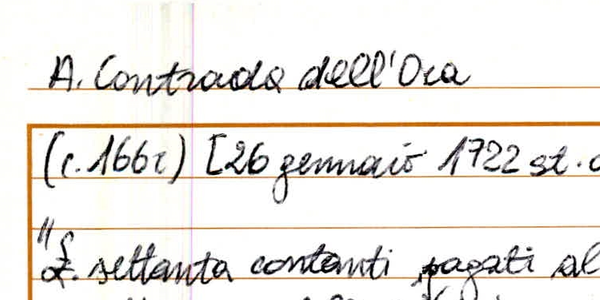 A. Contrada dell'Oca
(c. 166r) [26 gennaio 1722 st. c
"£. settanta contanti pagati al